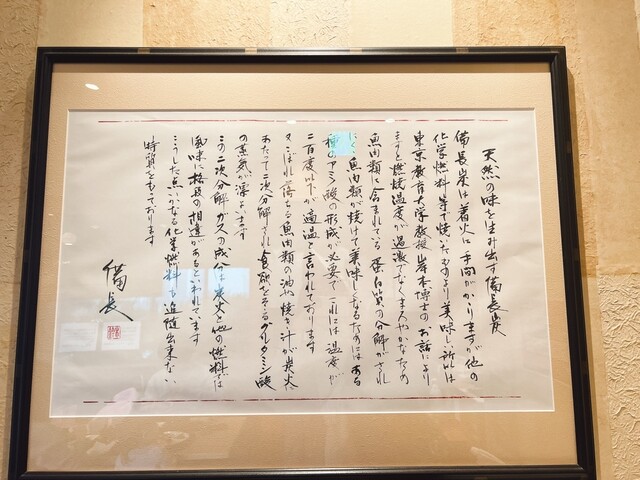 天然の味を生み出す備長炭
備長炭は着火に手間がかかりますが他の
化学燃料等で焼いたものより美味しい所以は
東京教育大学教授岸本博士のお話により
ますと燃焼温度が過激でなくまろやかなため
魚肉類に含まれている蛋白質の分解がされ
にくく魚肉類が焼けて美味しくなるためにはある
種のアミノ酸の形成が必要でこれには温度が
二百度以下が適温と言われております
又こぼれ落ちる魚肉類の油や焼き汁が炭火に
あたって二次分解され食欲をそそるグルタミン酸
の蒸気が漂よいます
この二次分解ガスの成分は炭火と他の燃料では
風味に格段の相違があるといわれています
こうした点いかなる化学燃料も追随出来ない
特質をもっております
備長